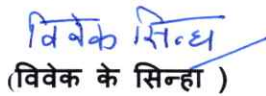 विवेक सिन्हा
(विवेक के सिन्हा )